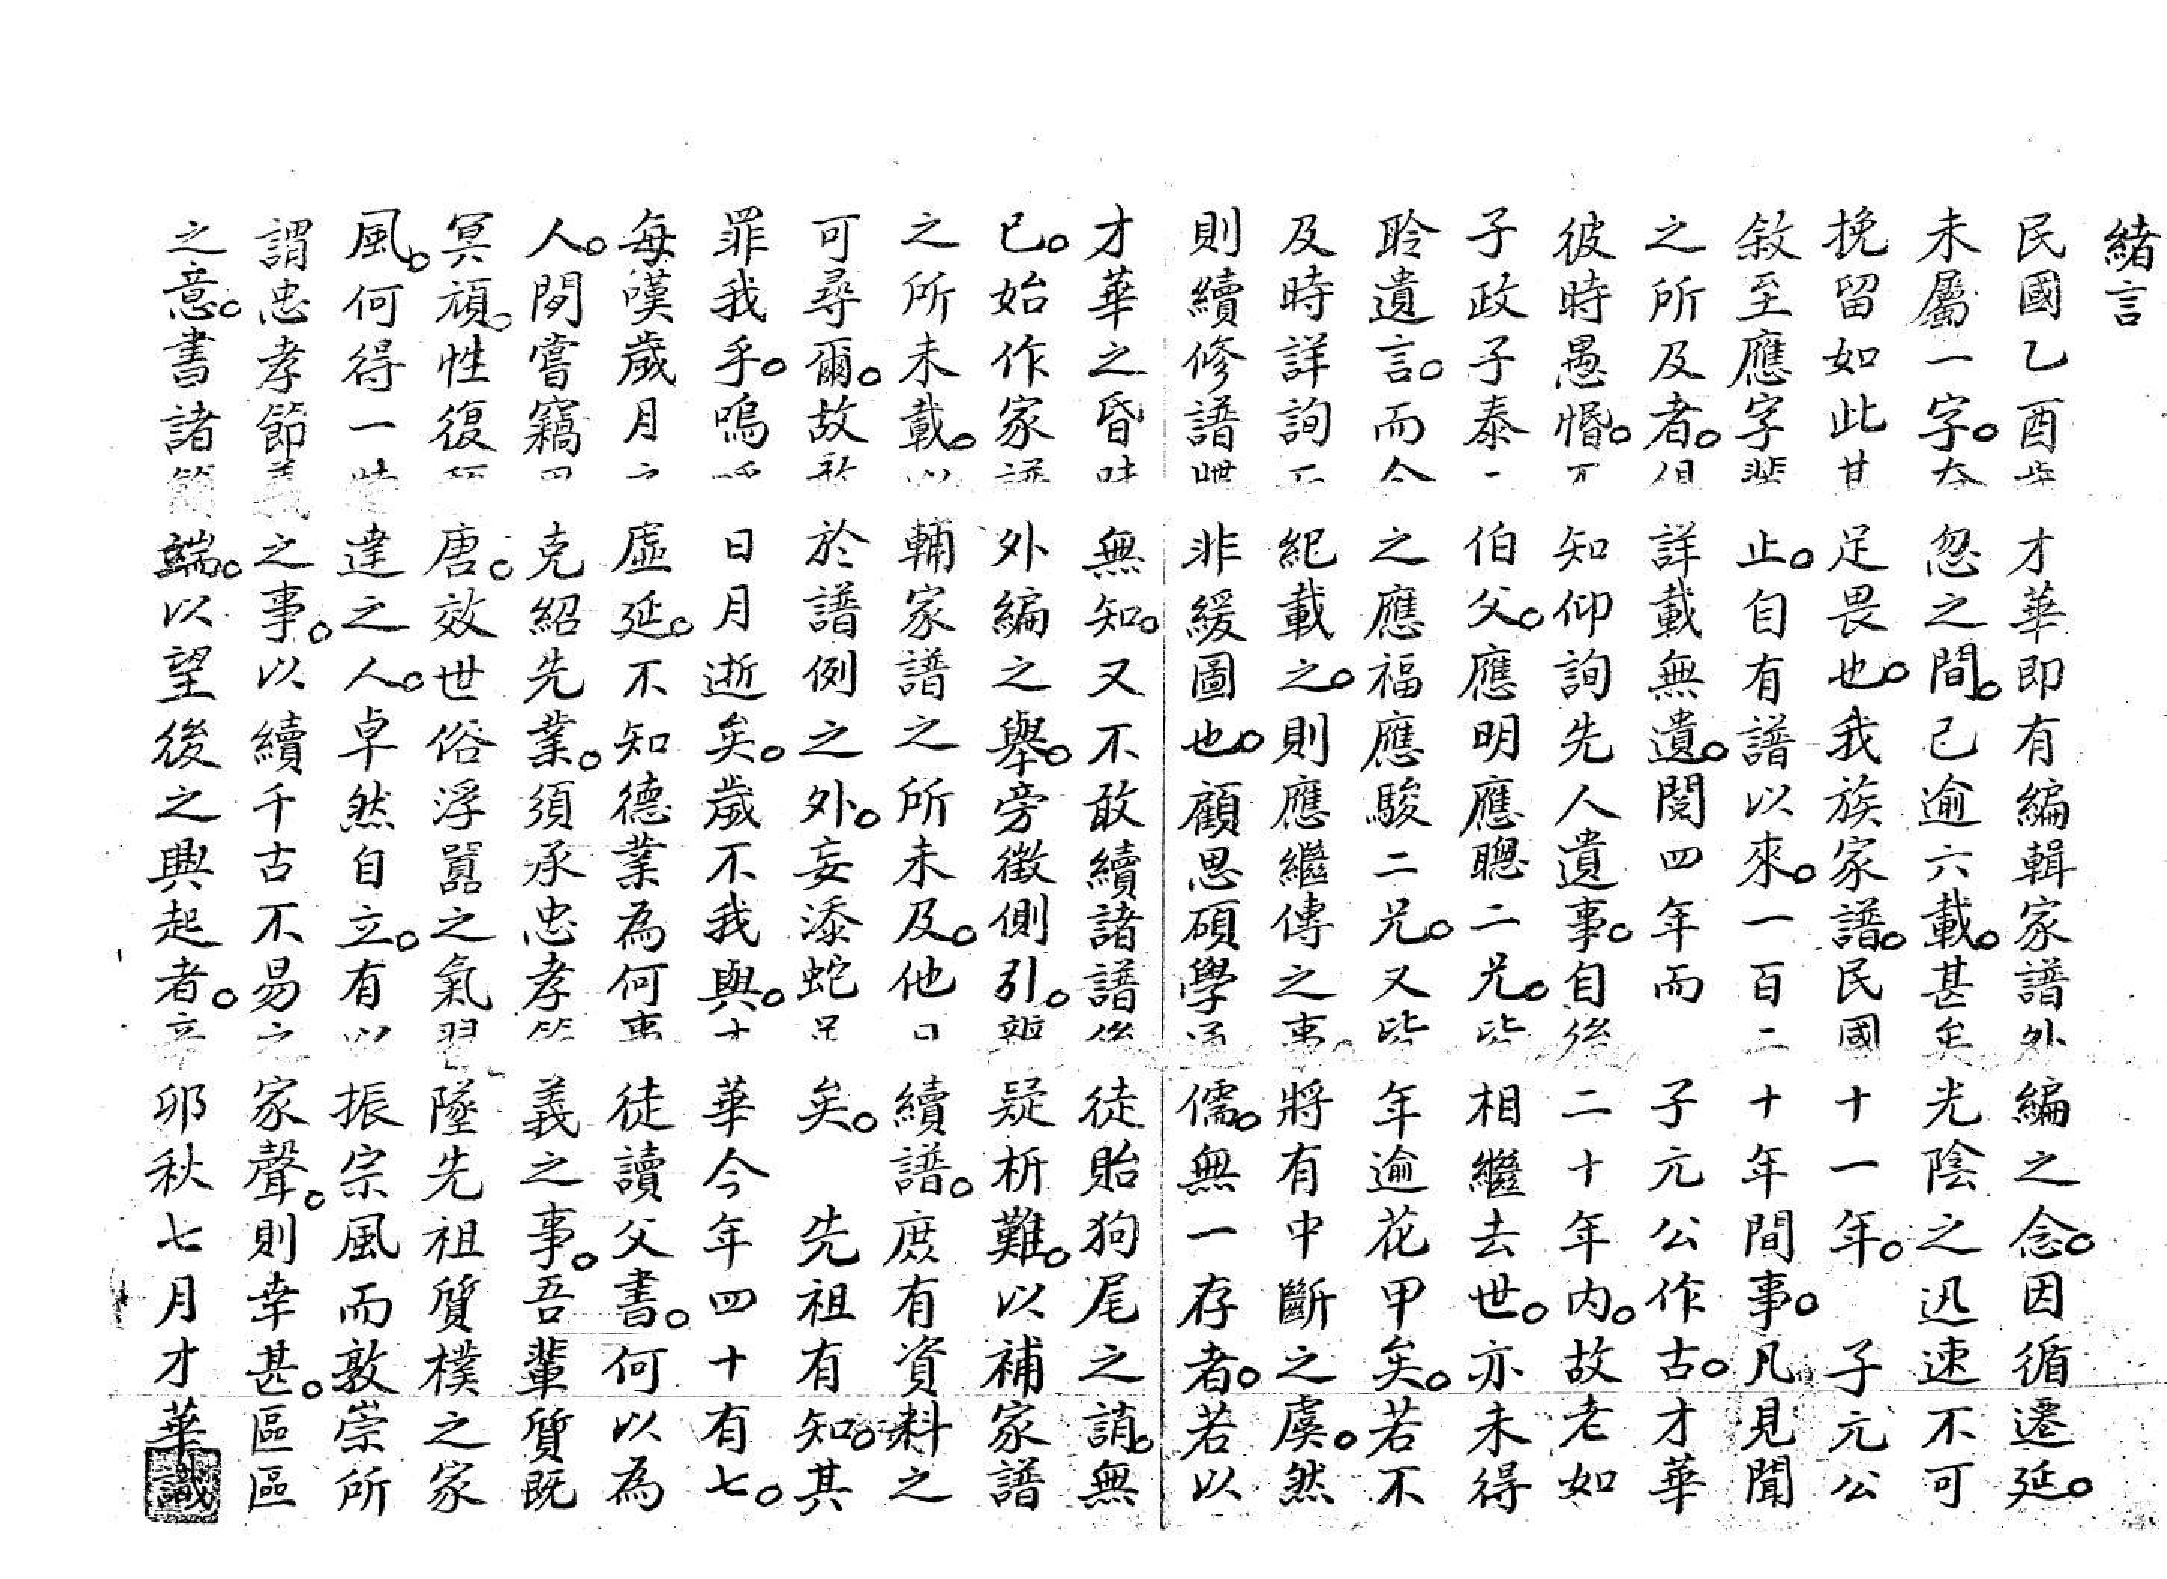 緒言
民國乙酉歲才華即有編輯家譜外編之念。因循遷延。
未屬一字。忽之間。已逾六載。甚矣光陰之迅速不可
挽留如此甚足畏也。我族家譜。民國十一年。子元公
敘至應字輩止。自有譜以來。一百二十年間事。凡見聞
之所及者。但詳載無遺。閱四年而子元公作古。才華
彼時愚惽。不知仰詢先人遺事。自後二十年內。故老如
子政子泰二伯父。應明應聰二兄。皆相繼去世。亦未得
聆遺言。而今之應福應駿二兄。又皆年逾花甲矣。若不
及時詳詢而紀載之。則應繼傳之事。將有中斷之虞。然
則續修譜牒非緩圖也。顧思碩學通儒。無一存者。若以
才華之昏昧無知。又不敢續諸譜後徒貽狗尾之誚。無
已。始作家譜外編之舉。旁徵側引。辯疑析難。以補家譜
之所未載。以輔家譜之所未及。他日續譜。庶有資料之
可尋爾。故於譜例之外。妄添蛇足矣。先祖有知。其
罪我乎。嗚呼日月逝矣。歲不我與。才華今年四十有七。
每嘆歲月之虛延。不知德業為何事徒讀父書。何以為
人。間嘗竊思克紹先業。須承忠孝節義之事。吾輩質既
冥頑。性復頹唐。效世俗浮囂之氣習墜先祖質樸之家
風。何得一特達之人。卓然自立。有以振宗風而敦崇所
謂忠孝節義之事。以續千古不易之家聲。則幸甚。區區
之意。書諸簡端。以望後之興起者。辛卯秋七月才華識